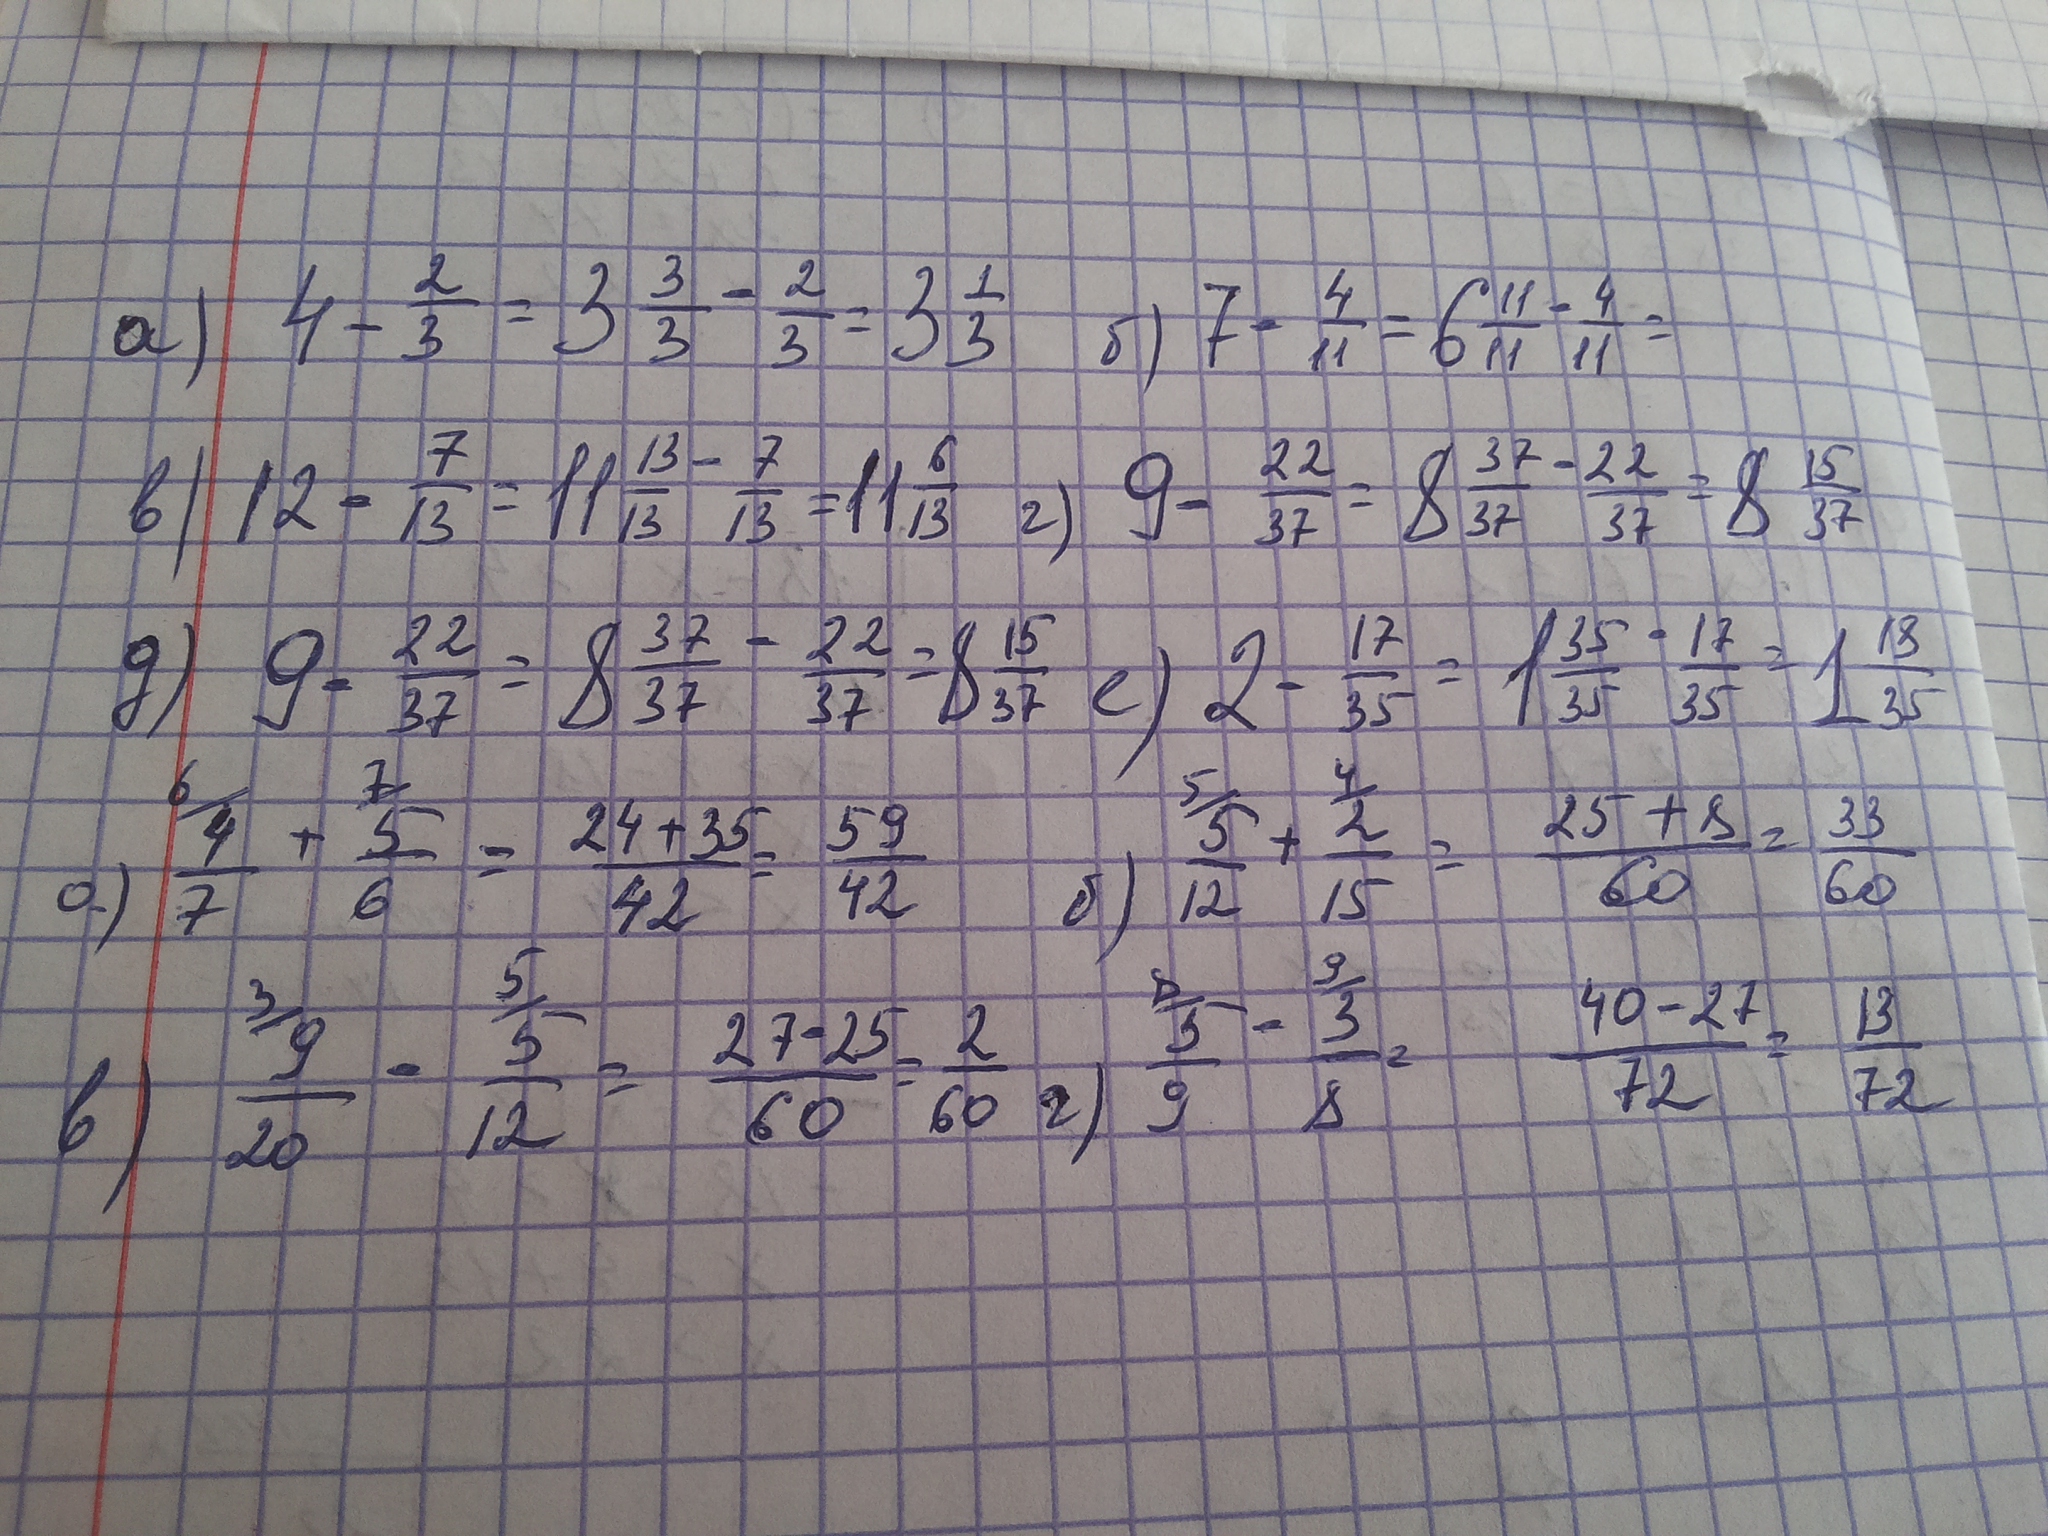 а) 4 - 2/3 = 3 3/3 - 2/3 = 3 1/3 б) 7 - 4/11 = 6 11/11 - 4/11 =
в) 12 - 7/13 = 11 13/13 - 7/13 = 11 6/13 г) 9 - 22/37 = 8 37/37 - 22/37 = 8 15/37
д) 9 - 22/37 = 8 37/37 - 22/37 = 8 15/37 е) 2 - 17/35 = 1 35/35 - 17/35 = 1 18/35
а) 6/ 4/7 + 7/ 5/6 = (24+35)/42 = 59/42 б) 5/ 5/12 + 4/ 2/15 = (25+8)/60 = 33/60
в) 3/ 9/20 - 5/ 5/12 = (27-25)/60 = 2/60 г) 8/ 5/9 - 9/ 3/8 = (40-27)/72 = 13/72